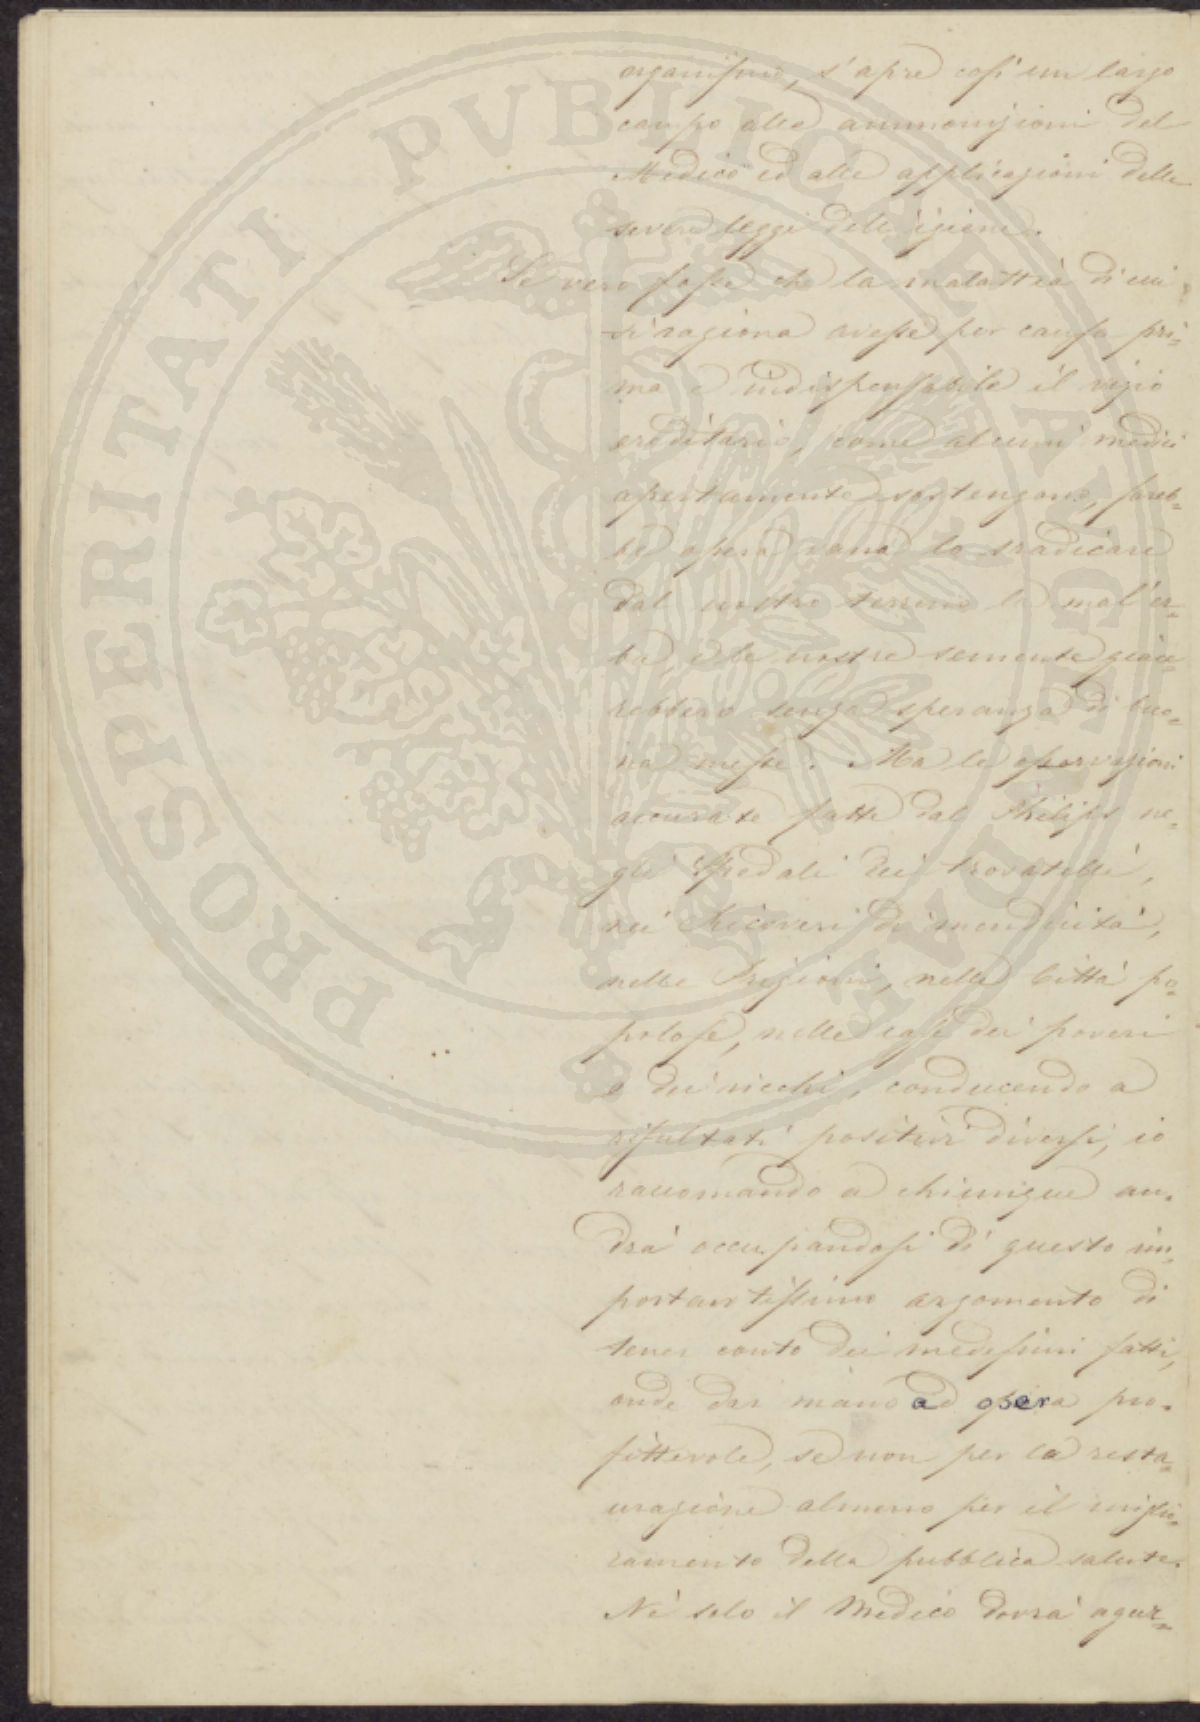 organismo, s'apre così un largo
campo alle ammonizioni del
Medico ed alle applicazioni delle
severe leggi dell'igiene.
Se vero fosse che la malattia di cui
si ragiona avesse per causa pri=
ma e indispensabile il vizio
ereditario, come alcuni medici
apertamente sostengono, sareb=
be opera vana lo sradicare
dal nostro terreno la mal'er=
ba, e le nostre semente giace=
rebbero senza speranza di buo=
na messe. Ma le osservazioni
accurate fatte dal Philips ne=
gli Spedali dei trovatelli,
nei Ricoveri di mendicità,
nelle Prigioni, nelle Città po=
polose, nelle case dei poveri
e dei ricchi, conducendo a
risultati positivi diversi, io
raccomando a chiunque an=
drà occupandosi di questo im=
portantissimo argomento di
tener conto dei medesimi fatti,
onde dar mano ad opera pro=
fittevole, se non per la resta=
urazione almeno per il miglio=
ramento della pubblica salute.
Nè solo il Medico dovrà aguz=
PROSPERITATI PVBLICAE AVGENDAE